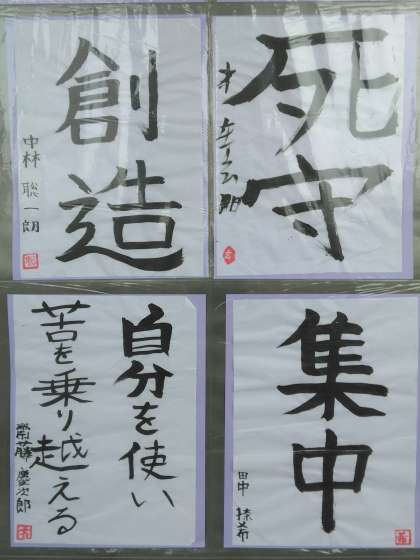 創造
中林 聡一朗
死守
集中
田中
自分を使い
苦を乗り越える
齋藤 慶次郎